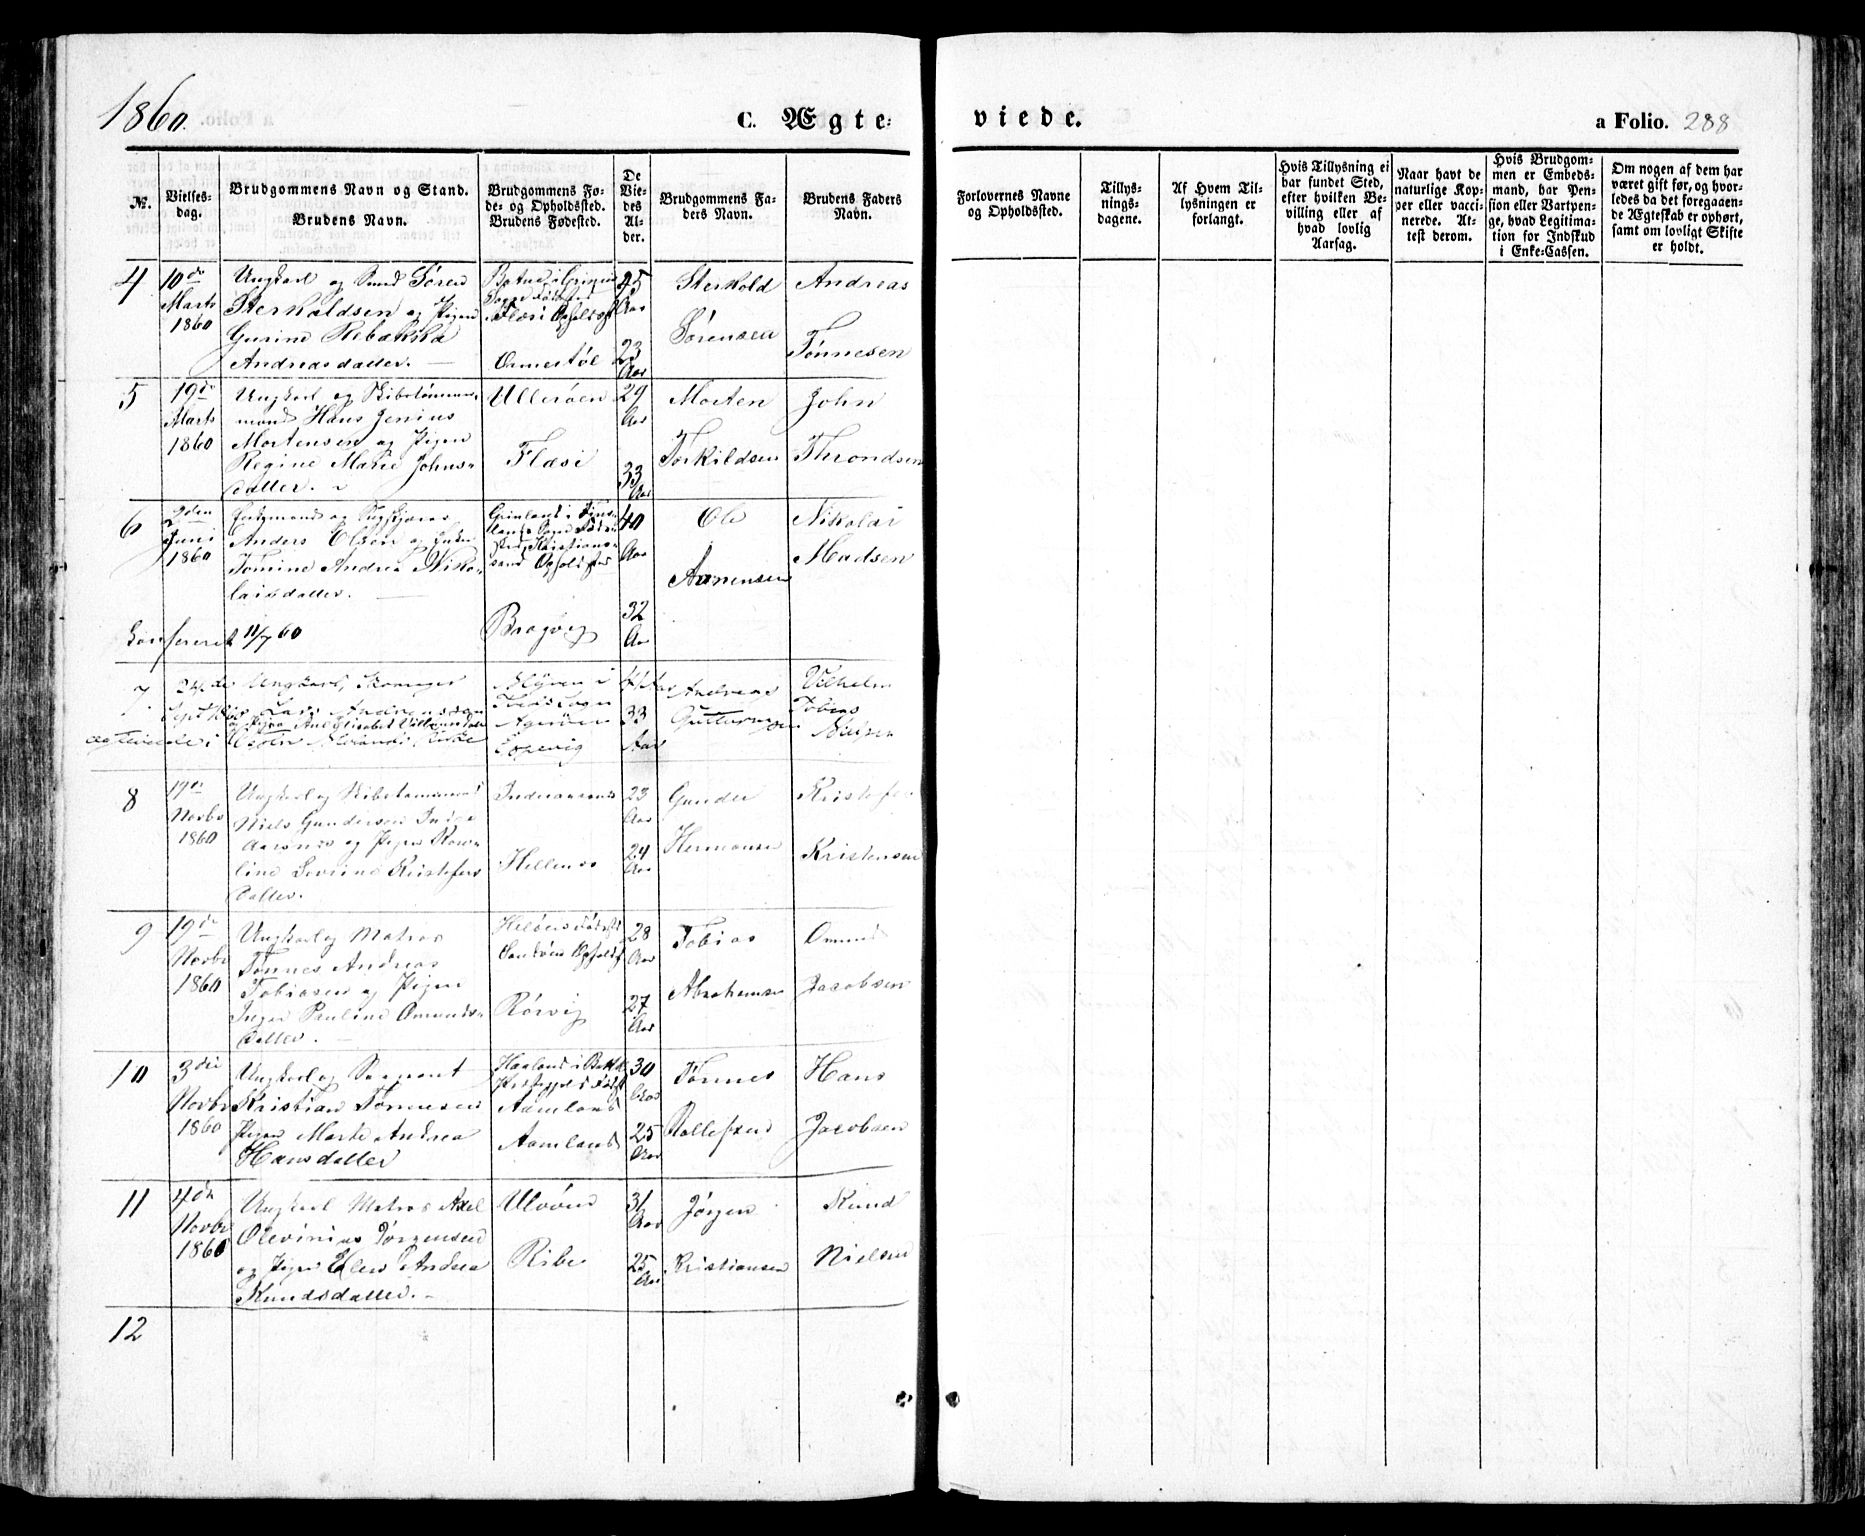 1860.
C. Ægte-
viede.
a Folio. 288
№.
Vielses-
dag.
Brudgommens Navn og Stand.
Brudens Navn.
Brudgommens Fø-
de- og Opholdssted.
Brudens Fødested.
De
Vie-
des
Al-
der.
Brudgommens Fa-
ders Navn.
Brudens Faders
Navn.
Forlovernes Navne
og Opholdssted.
Tillys-
nings-
dagene.
Af Hvem Til-
lysningen er
forlangt.
Hvis Tillysning ei
har fundet Sted,
efter hvilken Be-
villing eller af
hvad lovlig
Aarsag.
Naar havt de
naturlige Kop-
per eller vacci-
nerede. At-
test derom.
Hvis Brudgom-
men er Embeds-
mand, har Pen-
sion eller Vartpen-
ge, hvad Legitima-
tion for Indskud
i Enke-Cassen.
Om nogen af dem har
været gift før, og hvor-
ledes da det foregaaen-
de Ægteskab er ophørt,
samt om lovligt Skifte
er holdt.
4
10de
Marts
1860
Ungkarl og Søren
Sterkoldsen og Pigen
Gurine Rebakka
Andreasdatter.
Flæsi Opholdst
Ormestøl
25
Aar
23
Aar
Sterkold
Sørensen
Andreas
Tønnesen
5
19de
Marts
1860
Ungkarl og Skibstømmer-
mand Hans Jenius
Mortensen og Pigen
Regine Marie Johns-
datter.
Ullerøen
Flæsi
29
Aar
33
Aar
Morten
Torkildsen
John
Throndsen
6
2den
Juni
1860
Enkemand og
Anders Olsen og Enke
Tomine Andrea Niko-
laisdatter.
Grimland i Fins-
land Føde-
sted, Kristian-
sand Opholdsted
Bragvig
40
Aar
32
Aar
Ole
Aanensen
Nikolai
Madsen
Konfereret 11/7 60
7
24de
Sept
Ungkarl,
Lars Andreassen
og Pigen Ane Elisabet Villumsdatter
ægteviede i Kirke
i
Sogn
Agerøen
Aar
33
Aar
Andreas
Guttormsen
Vilhelm
Tobias
Nielsen
8
19de
Novbr
1860
Ungkarl og Skibstømmermand
Niels Gundersen
og Pigen
Kristofers
datter.
Hellenes
23
Aar
24
Aar
Gunder
Hermansen
Kristofer
Kristensen
9
19de
Novbr
1860
Ungkarl og Matros
Tønnes Andreas
Tobiasen og Pigen
Inger Pauline Omunds-
datter.
Helöens Fødest
Sandøen Opholdst
Rørvig
28
Aar
27
Aar
Tobias
Abrahamsen
Omund
Jacobsen
10
3die
Novbr
1860
Ungkarl og Sergeant
Kristian Tønnesen
Pigen Marte Andrea
Hansdatter
Haaland i
Aamland
Aamland
30
Aar
25
Aar
Tønnes
Rollefsen
Hans
Jacobsen
11
4de
Novbr
1860
Ungkarl Matros Axel
Olevinius Jørgensen
og Pigen Elen Andrea
Knudsdatter.
Ulvöen
Ribe
31
Aar
25
Aar
Jørgen
Kristiansen
Knud
Nielsen
12